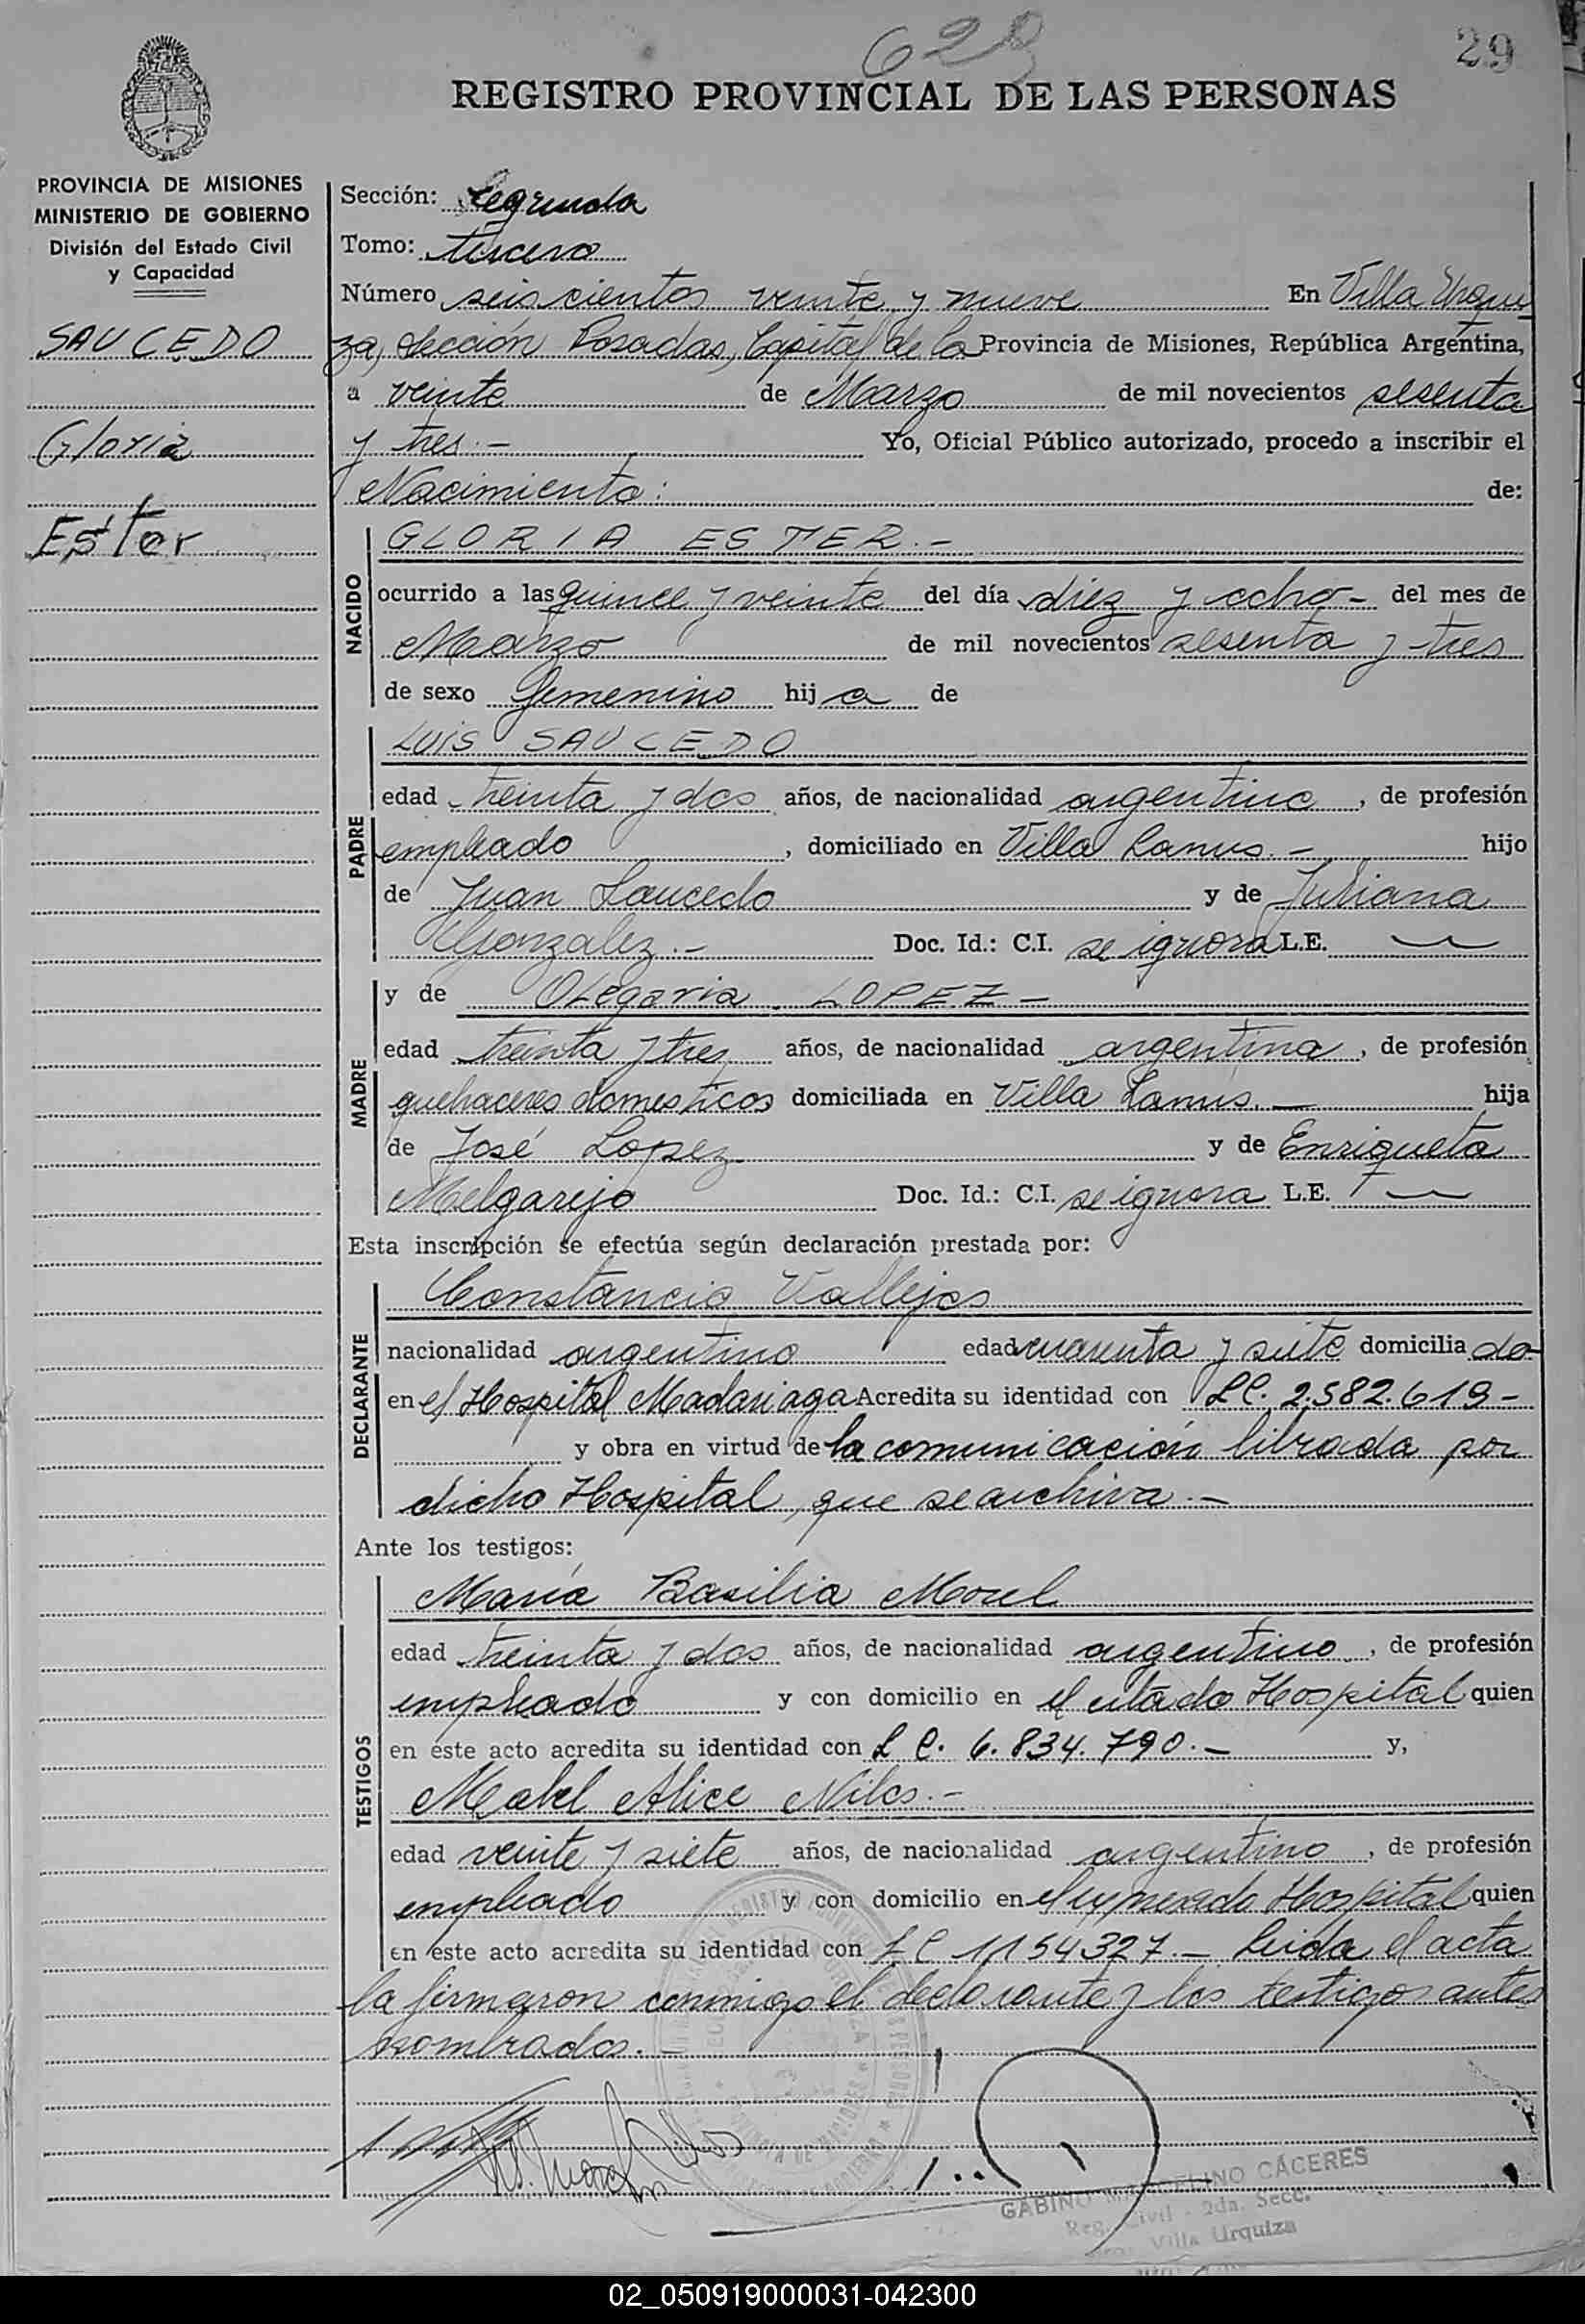 628
29
REGISTRO PROVINCIAL DE LAS PERSONAS
PROVINCIA DE MISIONES
MINISTERIO DE GOBIERNO
División del Estado Civil
y Capacidad
SAUCEDO
Gloria
Ester
Sección: Segunda
Tomo: tercero
Número seiscientos veinte y nueve En Villa Urqui
za, Sección Posadas, Capital de la Provincia de Misiones, República Argentina,
a veinte de Marzo de mil novecientos sesenta
y tres.- Yo, Oficial Público autorizado, procedo a inscribir el
Nacimiento: de:
NACIDO
GLORIA ESTER.-
ocurrido a las quince y veinte del día diez y ocho- del mes de
Marzo de mil novecientos sesenta y tres
de sexo femenino hija de
PADRE
LUIS SAUCEDO
edad treinta y dos años, de nacionalidad argentino, de profesión
empleado, domiciliado en Villa Lanus.- hijo
de Juan Saucedo y de Juliana
Gonzalez.- Doc. Id.: C.I. se ignora L.E. —
MADRE
y de Olegaria LOPEZ-
edad treinta y tres años, de nacionalidad argentina, de profesión
quehaceres domesticos domiciliada en Villa Lanús.- hija
de José Lopez y de Enriqueta
Melgarejo Doc. Id.: C.I. se ignora L.E. —
Esta inscripción se efectúa según declaración prestada por:
DECLARANTE
Constancio Vallejos
nacionalidad argentino edad cuarenta y siete domiciliado
en el Hospital Madariaga Acredita su identidad con LC. 2.582.619-
y obra en virtud de la comunicación librada por
dicho Hospital, que se archiva.-
Ante los testigos:
TESTIGOS
María Basilia Morel
edad treinta y dos años, de nacionalidad argentino, de profesión
empleado y con domicilio en el citado Hospital quien
en este acto acredita su identidad con L C. 6.834.790.- y,
Mabel Alice Nilos.-
edad veinte y siete años, de nacionalidad argentino, de profesión
empleado y con domicilio en el expresado Hospital quien
en este acto acredita su identidad con LC 1154327.- Leida el acta
la firmaron conmigo el declarante y los testigos antes
nombrados.-
GABINO MARCELINO CÁCERES
Reg. Civil - 2da. Secc.
Villa Urquiza
02_050919000031-042300